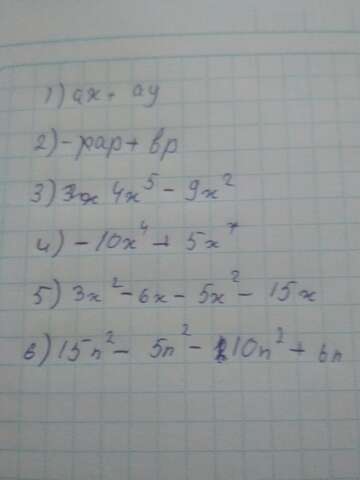 1) ax + ay
2) - pap + bp
3) 4x⁵ - 9x²
4) - 10x⁴ + 5x⁷
5) 3x² - 6x - 5x² - 15x
6) 15n² - 5n² - 10n² + 6n